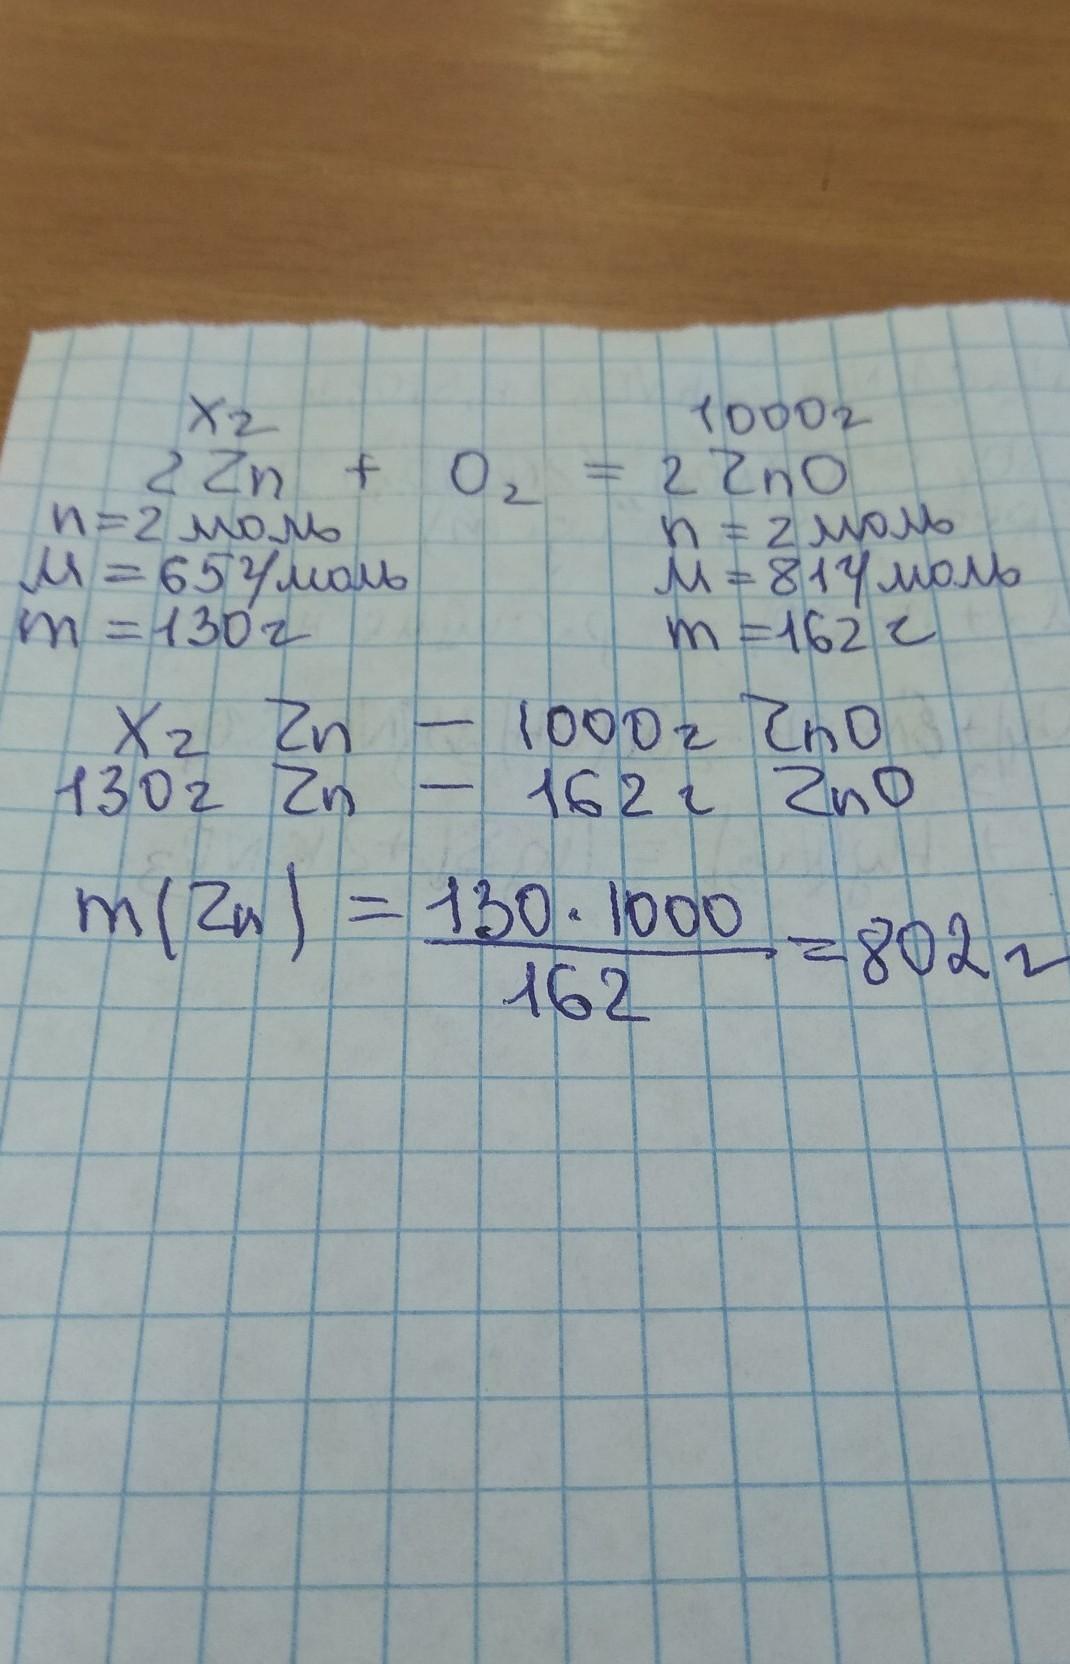 xг 1000г
2Zn + O₂ = 2ZnO
n=2моль n=2моль
M=65г/моль M=81г/моль
m=130г m=162г
xг Zn – 1000г ZnO
130г Zn – 162г ZnO
m(Zn) = 130·1000/162 = 802г